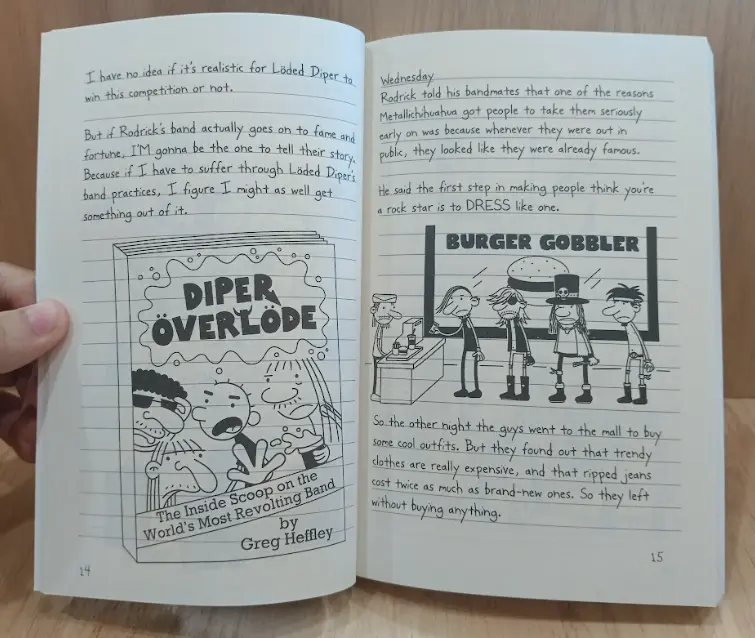 I have no idea if it's realistic for Löded Diper to
win this competition or not.
But if Rodrick's band actually goes on to fame and
fortune, I'M gonna be the one to tell their story.
Because if I have to suffer through Löded Diper's
band practices, I figure I might as well get
something out of it.
DIPER
ÖVERLÖDE
The Inside Scoop on the
World's Most Revolting Band
by
Greg Heffley
14
Wednesday
Rodrick told his bandmates that one of the reasons
Metallichihuahua got people to take them seriously
early on was because whenever they were out in
public, they looked like they were already famous.
He said the first step in making people think you're
a rock star is to DRESS like one.
BURGER GOBBLER
So the other night the guys went to the mall to buy
some cool outfits. But they found out that trendy
clothes are really expensive, and that ripped jeans
cost twice as much as brand-new ones. So they left
without buying anything.
15